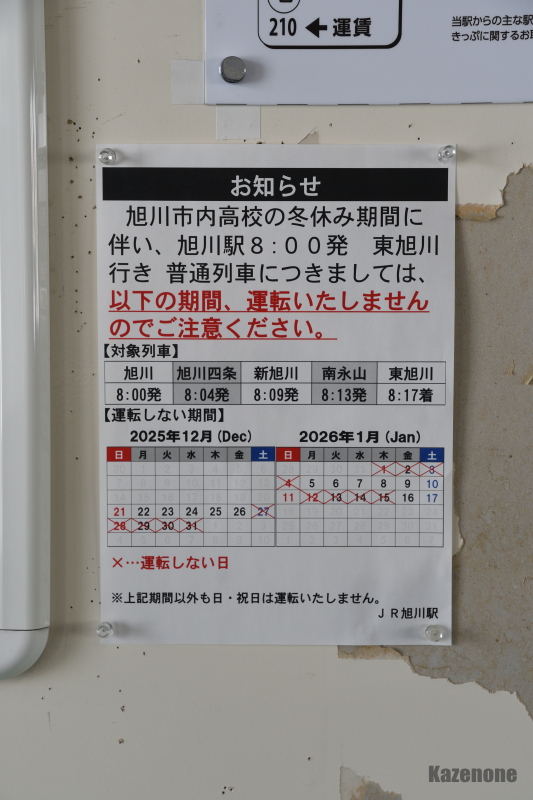 210 ← 運賃
当駅からの主な駅
きっぷに関するお
お知らせ
旭川市内高校の冬休み期間に
伴い、旭川駅8:00発 東旭川
行き 普通列車につきましては、
以下の期間、運転いたしません
のでご注意ください。
【対象列車】
旭川 旭川四条 新旭川 南永山 東旭川
8:00発 8:04発 8:09発 8:13発 8:17着
【運転しない期間】
2025年12月(Dec) 2026年1月(Jan)
日 月 火 水 木 金 土 日 月 火 水 木 金 土
1 2 3
4 5 6 7 8 9 10
21 22 23 24 25 26 27 11 12 13 14 15 16 17
28 29 30 31
×…運転しない日
※上記期間以外も日・祝日は運転いたしません。
JR旭川駅
Kazenone